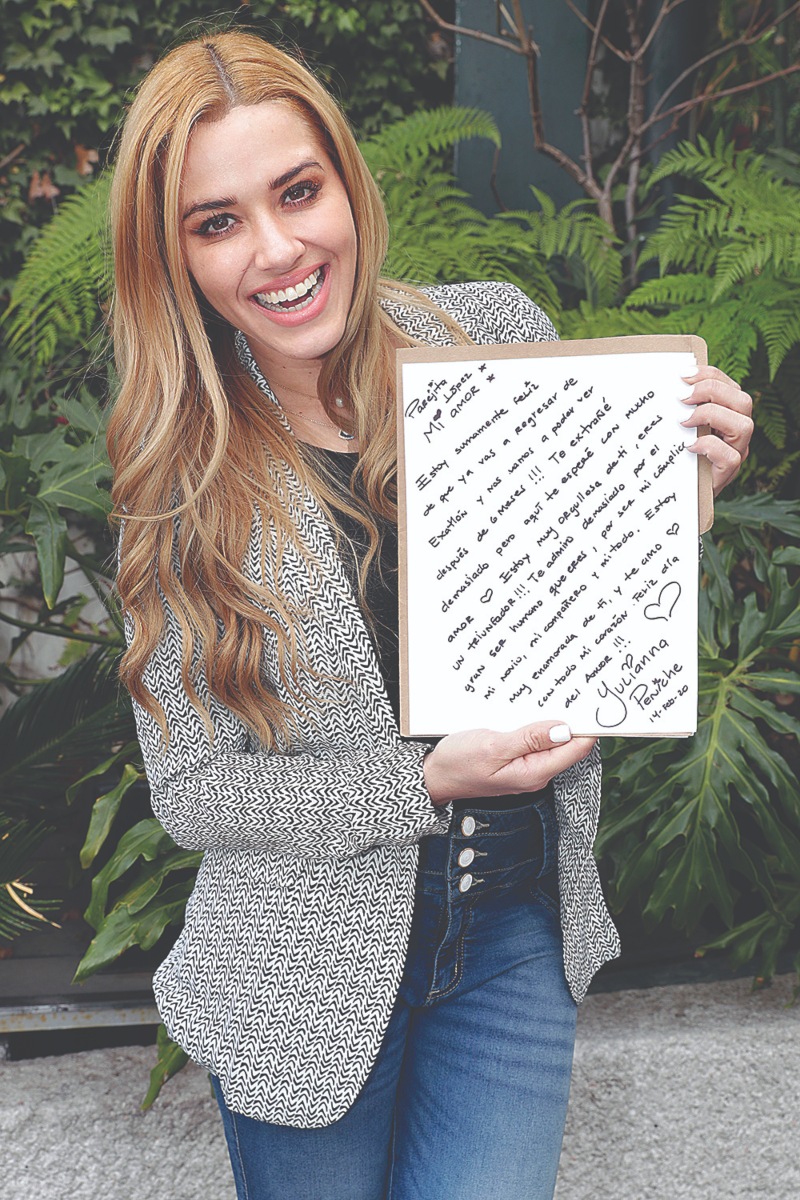 Parejita
Mi López
Mi AMOR
Estoy sumamente feliz
de que ya vas a regresar de
Exatlón y nos vamos a poder ver
después de 6 Meses !!! Te extrañé
demasiado pero aquí te esperé con mucho
amor ♡ Estoy muy orgullosa de ti, eres
un triunfador!!! Te admiro demasiado por el
gran ser humano que eres, por ser mi cómplice
mi novio, mi compañero y mi todo. Estoy
muy enamorada de ti, y te amo ♡
con todo mi corazón. Feliz día
del Amor !!!
Yulianna
Peniche
14-Feb-20